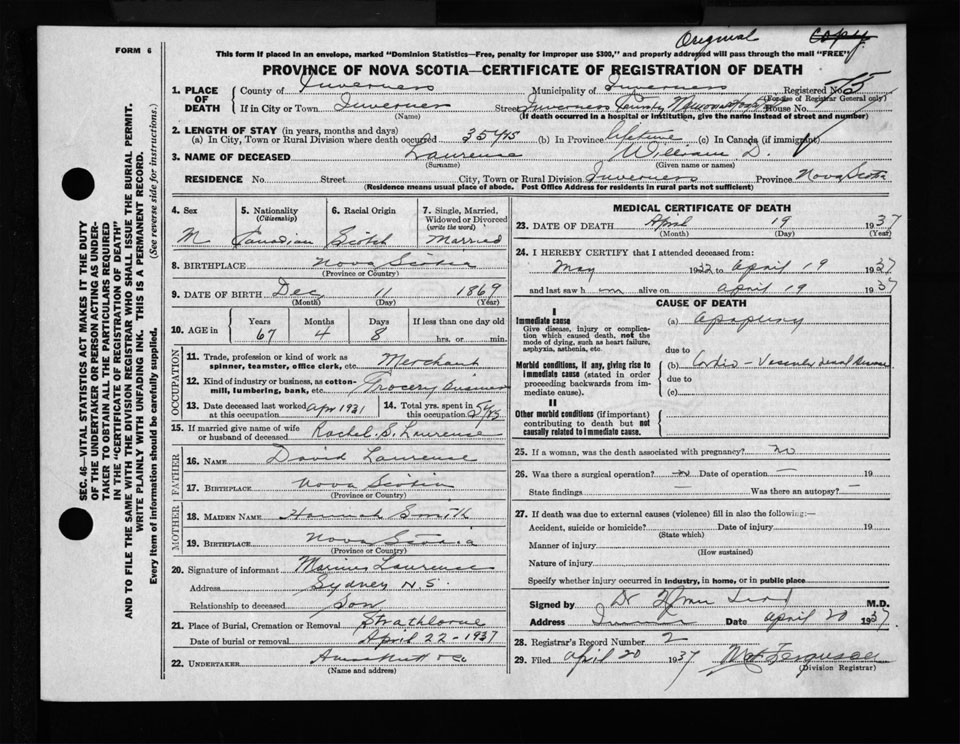 FORM 6
Original
Copy
This form if placed in an envelope, marked "Dominion Statistics—Free, penalty for improper use $300," and properly addressed will pass through the mail "FREE"
PROVINCE OF NOVA SCOTIA—CERTIFICATE OF REGISTRATION OF DEATH
SEC. 46—VITAL STATISTICS ACT MAKES IT THE DUTY
OF THE UNDERTAKER OR PERSON ACTING AS UNDER-
TAKER TO OBTAIN ALL THE PARTICULARS REQUIRED
IN THE "CERTIFICATE OF REGISTRATION OF DEATH"
AND TO FILE THE SAME WITH THE DIVISION REGISTRAR WHO SHALL ISSUE THE BURIAL PERMIT.
WRITE PLAINLY WITH UNFADING INK. THIS IS A PERMANENT RECORD.
Every item of information should be carefully supplied. (See reverse side for instructions.)
1. PLACE OF DEATH County of Inverness Municipality of Inverness Registered No.
(For use of Registrar General only)
If in City or Town Inverness Street Inverness County House No.
(Name) (If death occurred in a hospital or institution, give the name instead of street and number)
2. LENGTH OF STAY (in years, months and days)
(a) In City, Town or Rural Division where death occurred 35 yrs (b) In Province lifetime (c) In Canada (if immigrant)
3. NAME OF DECEASED Laurense William D.
(Surname) (Given name or names)
RESIDENCE No. Street City, Town or Rural Division Inverness Province Nova Scotia
(Residence means usual place of abode. Post Office Address for residents in rural parts not sufficient)
4. Sex M
5. Nationality (Citizenship) Canadian
6. Racial Origin Scotch
7. Single, Married, Widowed or Divorced (write the word) Married
8. BIRTHPLACE Nova Scotia
(Province or Country)
9. DATE OF BIRTH Dec 11 1869
(Month) (Day) (Year)
10. AGE in Years 67 Months 4 Days 8 If less than one day old hrs. or min.
OCCUPATION
11. Trade, profession or kind of work as spinner, teamster, office clerk, etc. Merchant
12. Kind of industry or business, as cotton-mill, lumbering, bank, etc. Grocery business
13. Date deceased last worked at this occupation Apr 1931
14. Total yrs. spent in this occupation
15. If married give name of wife or husband of deceased Rachel S. Laurense
FATHER
16. NAME David Laurense
17. BIRTHPLACE Nova Scotia
(Province or Country)
MOTHER
18. MAIDEN NAME Hannah Smith
19. BIRTHPLACE Nova Scotia
(Province or Country)
20. Signature of informant Laurense
Address Sydney N.S.
Relationship to deceased Son
21. Place of Burial, Cremation or Removal Strathlorne
Date of burial or removal April 22 - 1937
22. UNDERTAKER
(Name and address)
MEDICAL CERTIFICATE OF DEATH
23. DATE OF DEATH April 19 1937
(Month) (Day) (Year)
24. I HEREBY CERTIFY that I attended deceased from:
May 1932 to April 19 1937
and last saw h im alive on April 19 1937
CAUSE OF DEATH
I
Immediate cause
Give disease, injury or complication which caused death, not the mode of dying, such as heart failure, asphyxia, asthenia, etc.
(a)
due to
Morbid conditions, if any, giving rise to immediate cause (stated in order proceeding backwards from immediate).
(b) Cardio-Vascular Renal Disease
due to
(c)
II
Other morbid conditions (if important) contributing to death but not causally related to immediate cause.
25. If a woman, was the death associated with pregnancy? no
26. Was there a surgical operation? — Date of operation — 19
State findings Was there an autopsy? —
27. If death was due to external causes (violence) fill in also the following:—
Accident, suicide or homicide? Date of injury 19
(State which)
Manner of injury
(How sustained)
Nature of injury
Specify whether injury occurred in industry, in home, or in public place
Signed by Dr M.D.
Address Date April 20 1937
28. Registrar's Record Number 2
29. Filed April 20 1937 Ferguson
(Division Registrar)